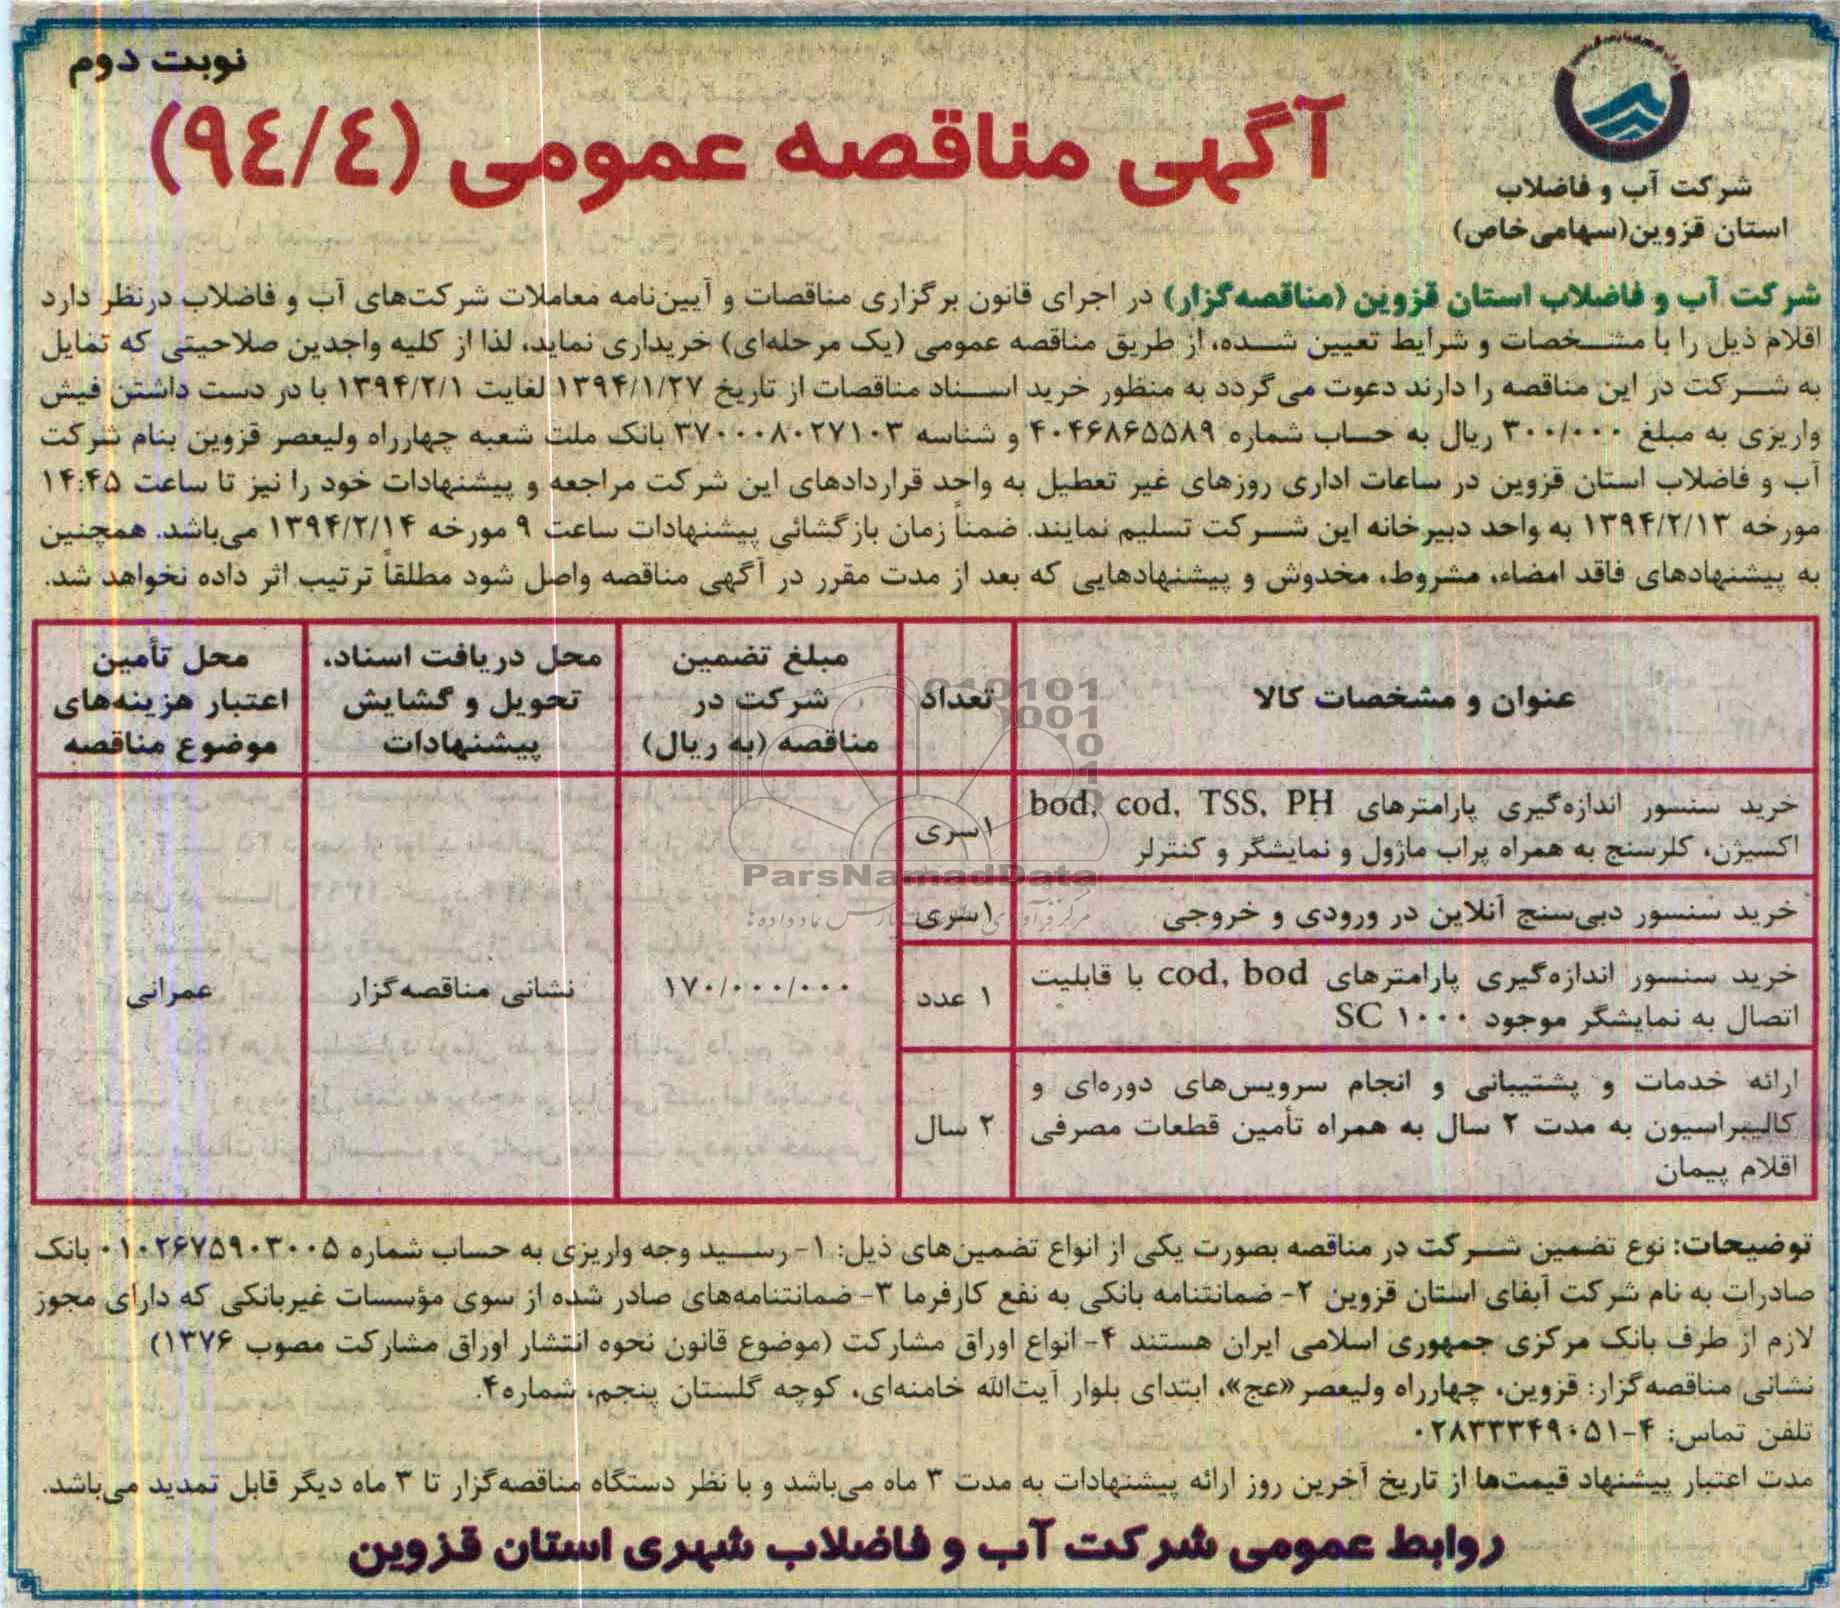 نوبت دوم
شرکت آب و فاضلاب
استان قزوین(سهامی‌خاص)
آگهی مناقصه عمومی (۹٤/٤)
شرکت آب و فاضلاب استان قزوین (مناقصه‌گزار) در اجرای قانون برگزاری مناقصات و آیین‌نامه معاملات شرکت‌های آب و فاضلاب درنظر دارد
اقلام ذیل را با مشخصات و شرایط تعیین شده، از طریق مناقصه عمومی (یک مرحله‌ای) خریداری نماید، لذا از کلیه واجدین صلاحیتی که تمایل
به شرکت در این مناقصه را دارند دعوت می‌گردد به منظور خرید اسناد مناقصات از تاریخ ۱۳۹۴/۱/۲۷ لغایت ۱۳۹۴/۲/۱ با در دست داشتن فیش
واریزی به مبلغ ۳۰۰/۰۰۰ ریال به حساب شماره ۴۰۴۶۸۶۵۵۸۹ و شناسه ۳۷۰۰۰۸۰۲۷۱۰۳ بانک ملت شعبه چهارراه ولیعصر قزوین بنام شرکت
آب و فاضلاب استان قزوین در ساعات اداری روزهای غیر تعطیل به واحد قراردادهای این شرکت مراجعه و پیشنهادات خود را نیز تا ساعت ۱۴:۴۵
مورخه ۱۳۹۴/۲/۱۳ به واحد دبیرخانه این شرکت تسلیم نمایند. ضمناً زمان بازگشائی پیشنهادات ساعت ۹ مورخه ۱۳۹۴/۲/۱۴ می‌باشد. همچنین
به پیشنهادهای فاقد امضاء، مشروط، مخدوش و پیشنهادهایی که بعد از مدت مقرر در آگهی مناقصه واصل شود مطلقاً ترتیب اثر داده نخواهد شد.
عنوان و مشخصات کالا
تعداد
مبلغ تضمین
شرکت در
مناقصه (به ریال)
محل دریافت اسناد،
تحویل و گشایش
پیشنهادات
محل تأمین
اعتبار هزینه‌های
موضوع مناقصه
خرید سنسور اندازه‌گیری پارامترهای bod, cod, TSS, PH
اکسیژن، کلرسنج به همراه پراب ماژول و نمایشگر و کنترلر
۱سری
خرید سنسور دبی‌سنج آنلاین در ورودی و خروجی
۱سری
خرید سنسور اندازه‌گیری پارامترهای cod, bod با قابلیت
اتصال به نمایشگر موجود SC ۱۰۰۰
۱ عدد
ارائه خدمات و پشتیبانی و انجام سرویس‌های دوره‌ای و
کالیبراسیون به مدت ۲ سال به همراه تأمین قطعات مصرفی
اقلام پیمان
۲ سال
۱۷۰/۰۰۰/۰۰۰
نشانی مناقصه‌گزار
عمرانی
ParsNamadData
توضیحات: نوع تضمین شرکت در مناقصه بصورت یکی از انواع تضمین‌های ذیل: ۱- رسید وجه واریزی به حساب شماره ۰۱۰۲۶۷۵۹۰۳۰۰۵ بانک
صادرات به نام شرکت آبفای استان قزوین ۲- ضمانتنامه بانکی به نفع کارفرما ۳- ضمانتنامه‌های صادر شده از سوی مؤسسات غیربانکی که دارای مجوز
لازم از طرف بانک مرکزی جمهوری اسلامی ایران هستند ۴- انواع اوراق مشارکت (موضوع قانون نحوه انتشار اوراق مشارکت مصوب ۱۳۷۶)
نشانی مناقصه‌گزار: قزوین، چهارراه ولیعصر«عج»، ابتدای بلوار آیت‌الله خامنه‌ای، کوچه گلستان پنجم، شماره۴.
تلفن تماس: ۴-۰۲۸۳۳۳۴۹۰۵۱
مدت اعتبار پیشنهاد قیمت‌ها از تاریخ آخرین روز ارائه پیشنهادات به مدت ۳ ماه می‌باشد و با نظر دستگاه مناقصه‌گزار تا ۳ ماه دیگر قابل تمدید می‌باشد.
روابط عمومی شرکت آب و فاضلاب شهری استان قزوین